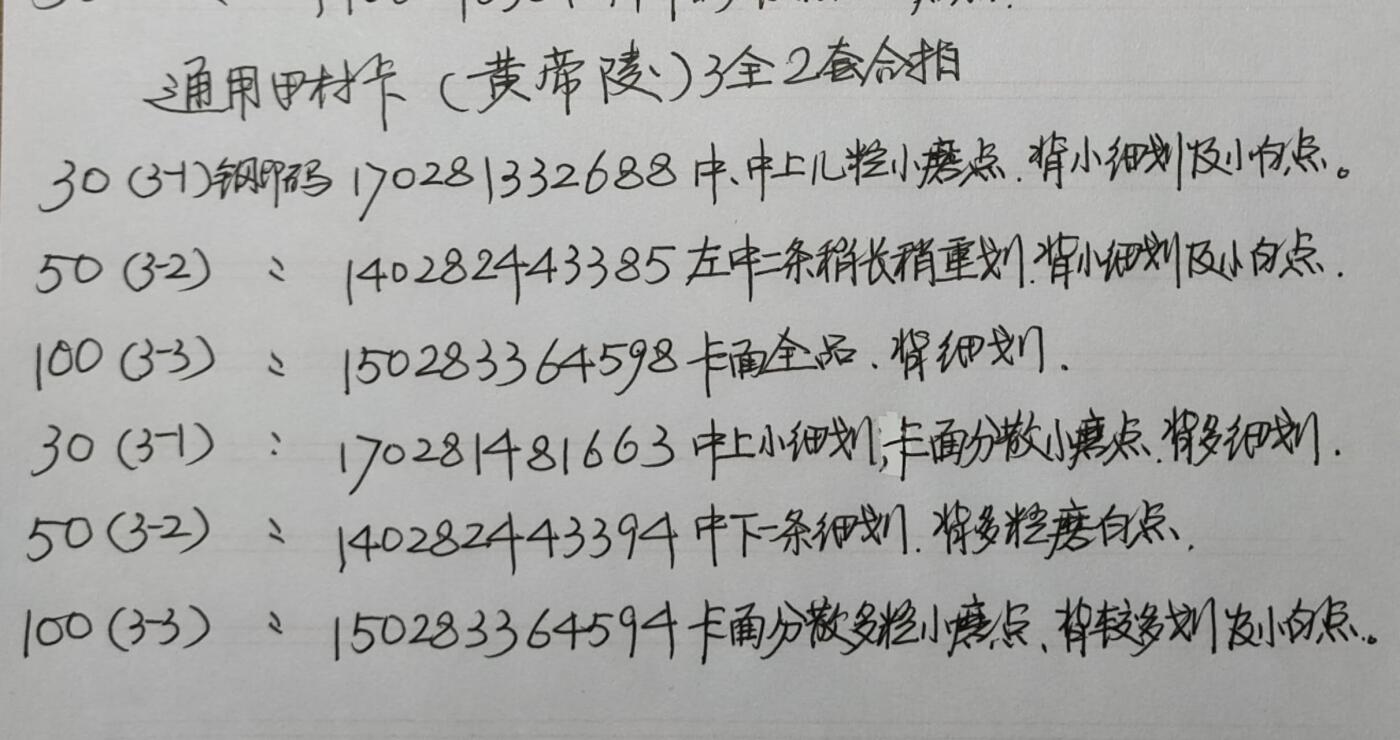 通用田村卡(黄帝陵)3全2套合拍
30(3-1)钢印码 170281332688中、中上几粒小磨点.背小细划及小白点。
50(3-2) 〃 140282443385左中二条稍长稍重划.背小细划及小白点.
100(3-3) 〃 150283364598卡面全品.背细划.
30(3-1) 〃 170281481663中上小细划,卡面分散小磨点.背多细划.
50(3-2) 〃 140282443394中下一条细划.背多粒磨白点.
100(3-3) 〃 150283364594卡面分散多粒小磨点、背较多划及小白点。